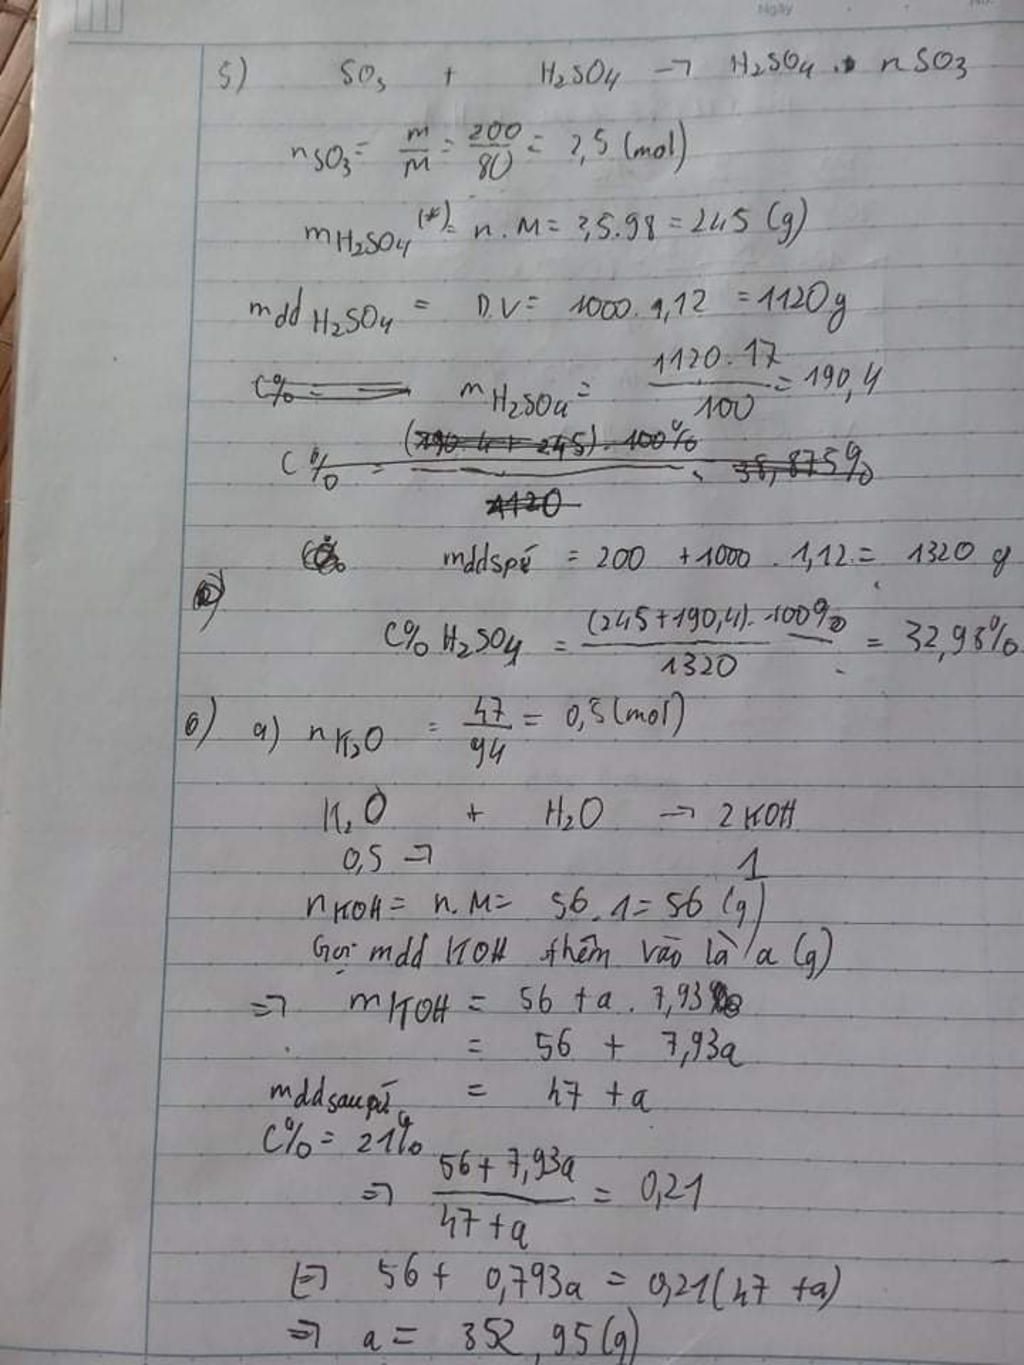 Ngày
5) SO3 + H2SO4 → H2SO4 . nSO3
nSO3 = m/M = 200/80 = 2,5 (mol)
mH2SO4 (*) = n.M = 2,5.98 = 245 (g)
mdd H2SO4 = D.V = 1000.1,12 = 1120g
C% = mH2SO4 = 1120.17/100 = 190,4
C% = (190,4 + 245).100%/1120 = 38,875%
mddspứ = 200 + 1000 . 1,12 = 1320 g
C% H2SO4 = (245+190,4).100%/1320 = 32,98%
6) a) nK2O = 47/94 = 0,5 (mol)
K2O + H2O → 2KOH
0,5 → 1
nKOH = n.M = 56.1 = 56 (g)
Gọi mdd KOH thêm vào là a (g)
⇒ mKOH = 56 + a . 7,93%
= 56 + 7,93a
mddsaupứ = 47 + a
C% = 21%
⇒ 56 + 7,93a/47 + a = 0,21
⇔ 56 + 0,793a = 0,21(47 + a)
⇒ a = 352,95(g)